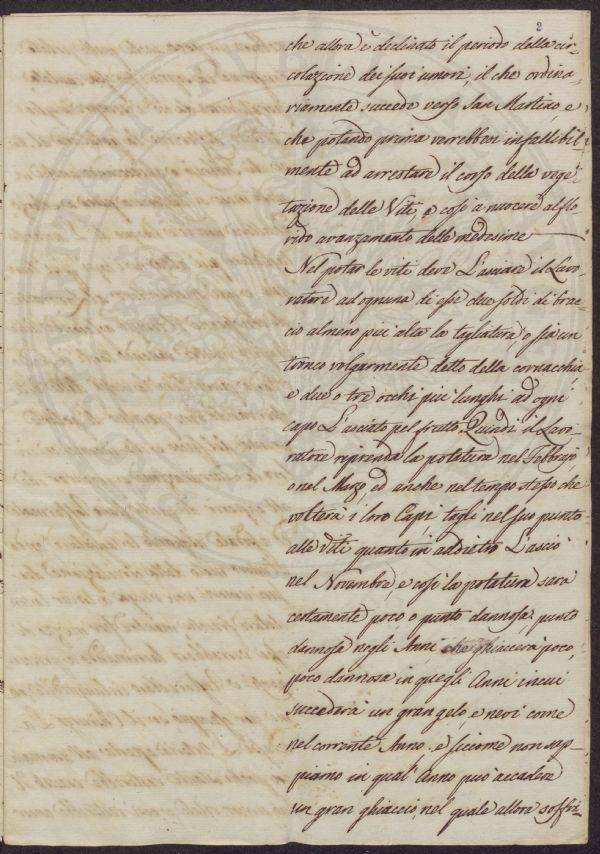 2
che allora è declinato il periodo della cir-
colazione dei suoi umori, il che ordina-
riamente succede verso San Martino, e
che potando prima verrebbesi infallibil-
mente ad arrestare il corso della vege-
tazione delle Viti, e così a nuocere al flo-
rido avanzamento delle medesime
Nel potar le viti deve L'asciare il Lavo-
ratore ad ognuna di esse due soldi di brac-
cio almeno più alta la tagliatura, o sia un
tronco volgarmente detto della cornacchia
e due o tre occhi più lunghi ad ogni
capo L'asciato pel frutto. Quindi il Lavo-
ratore riprenda la potatura nel Febbrajo
o nel Marzo, ed anche nel tempo stesso che
volterà i loro Capi tagli nel suo punto
alle viti quanto in addietro L'asciò
nel Novembre, e così la potatura sarà
certamente poco, o punto dannosa; punto
dannosa negli Anni che ghiaccerà poco,
poco dannosa in quegli Anni in cui
succederà un gran gelo e nevi come
nel corrente Anno. e siccome non sap-
piamo in qual' Anno può accadere
un gran ghiaccio, nel quale allora soffri-